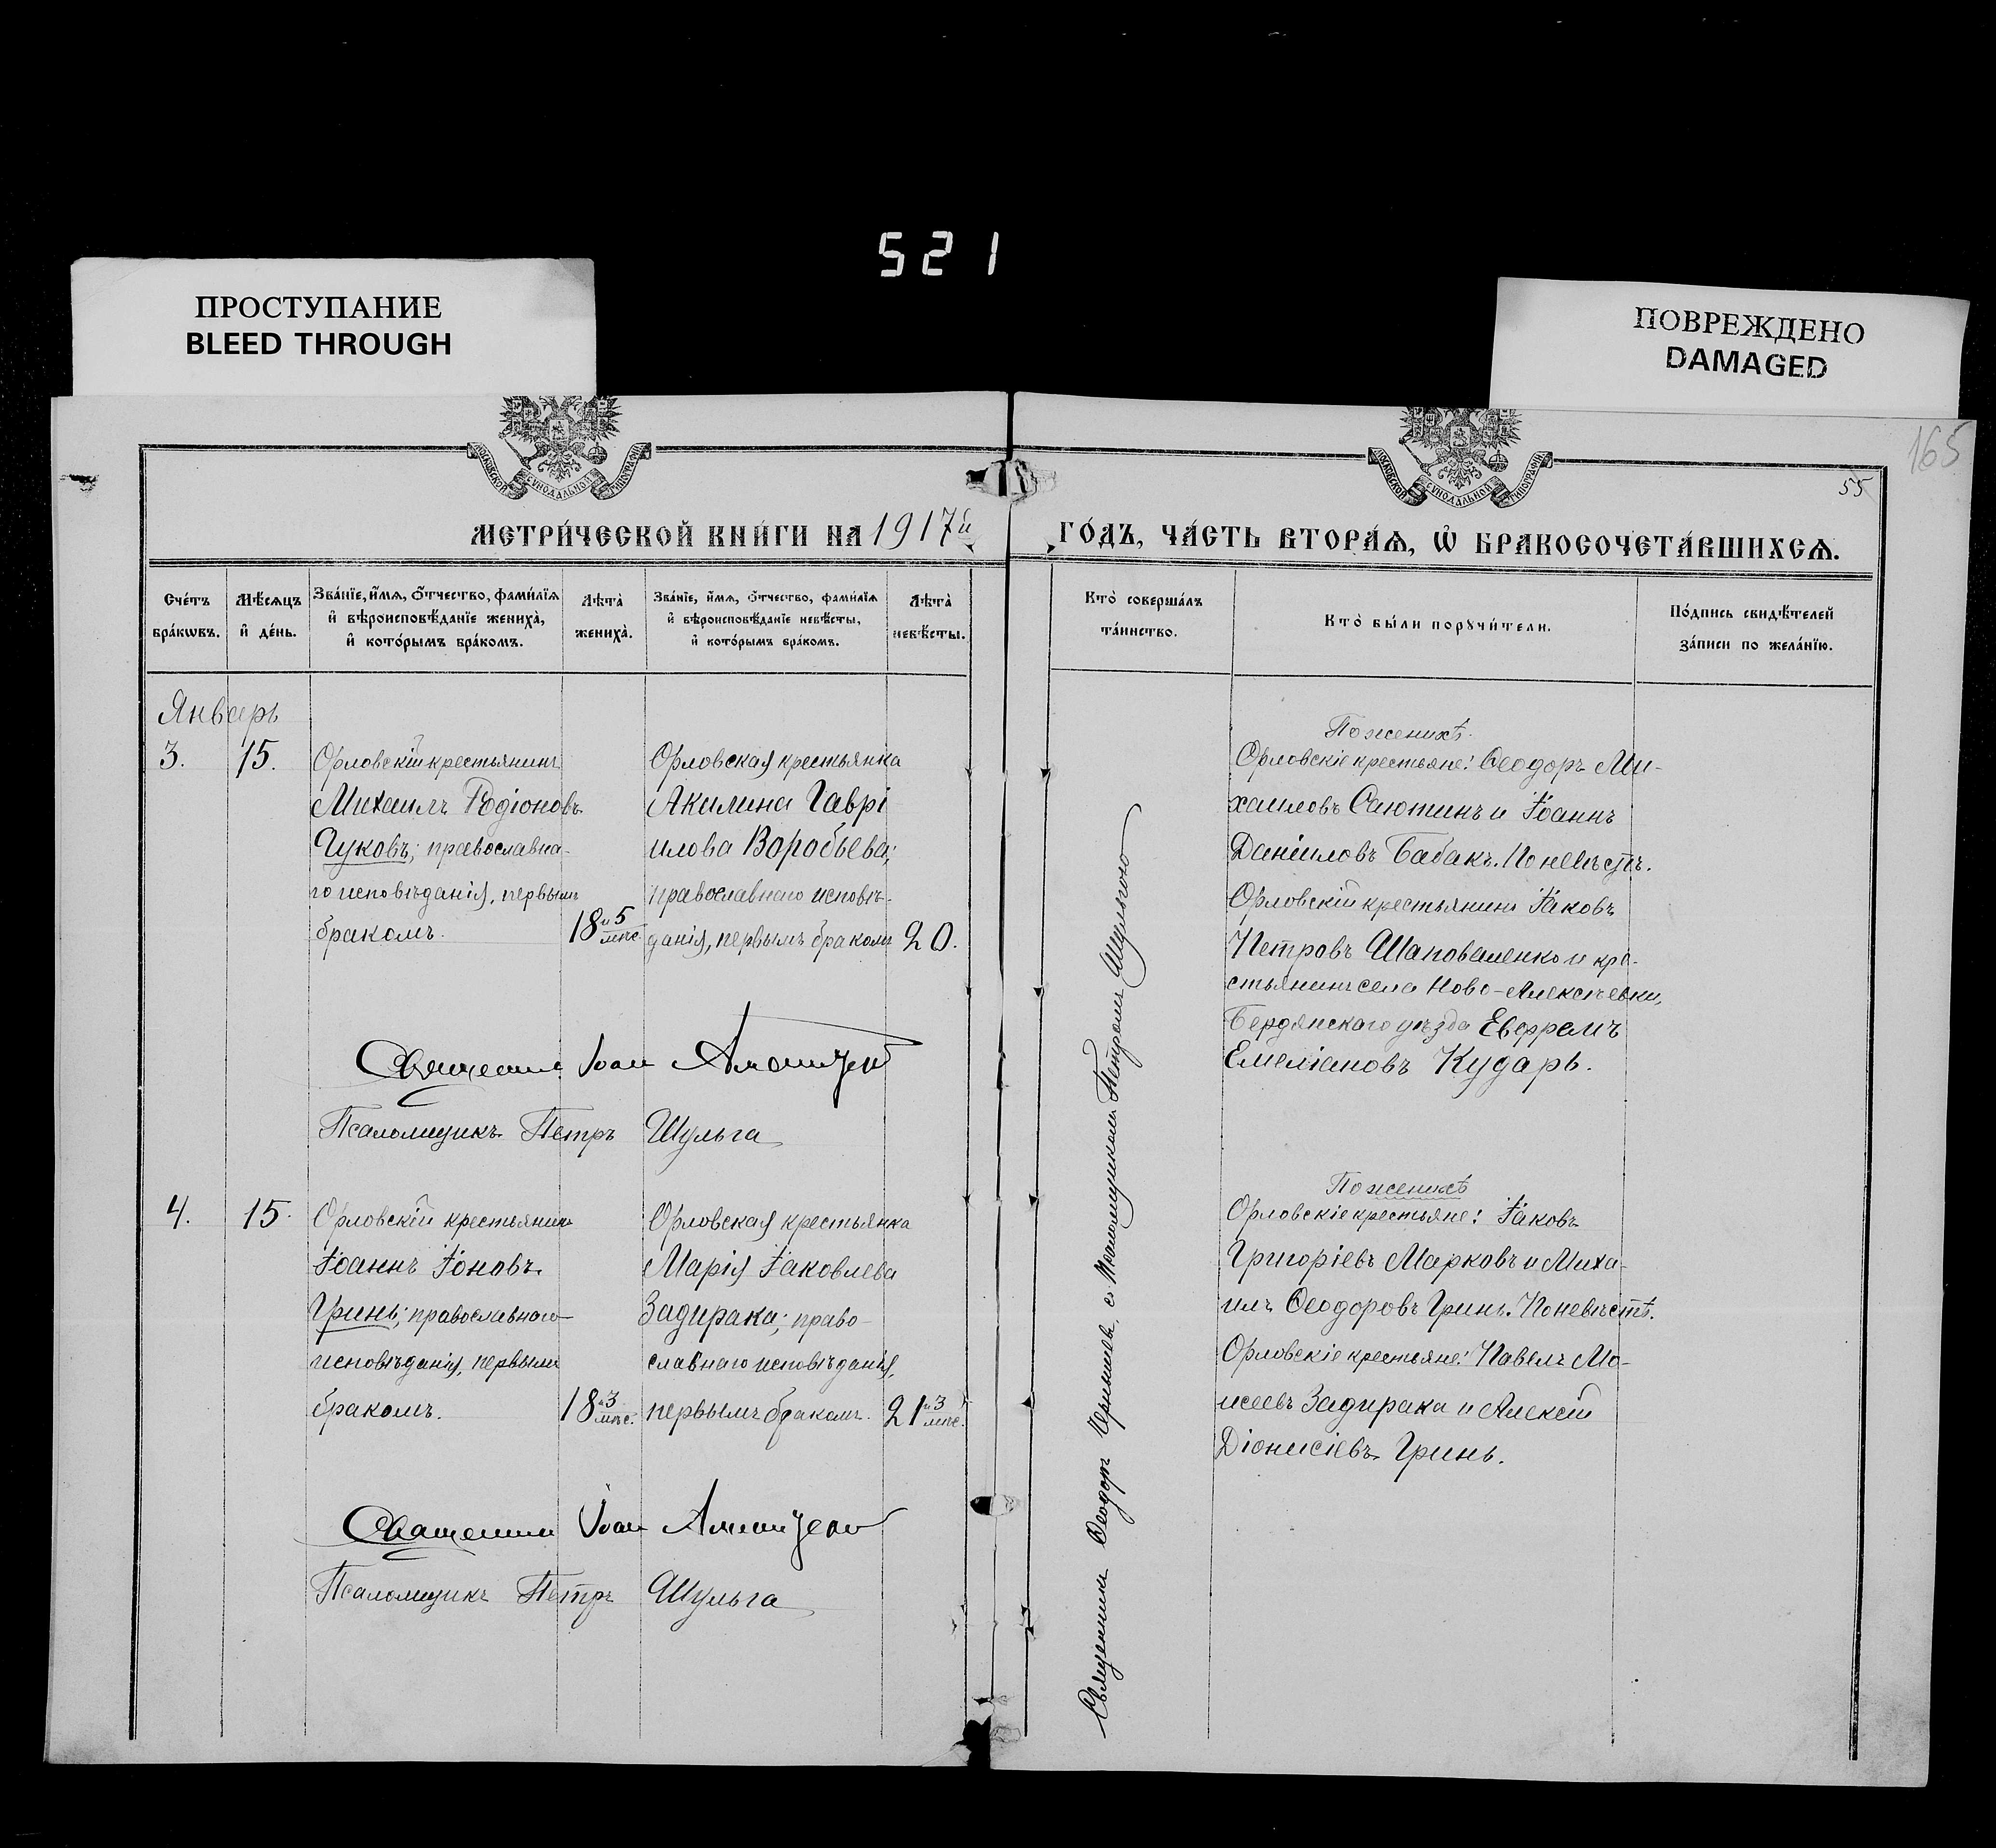 521
ПРОСТУПАНИЕ
BLEED THROUGH
ПОВРЕЖДЕНО
DAMAGED
МОСКОВСКОЙ СУНОДАЛЬНОЙ ТИПОГРАФІИ
МОСКОВСКОЙ СУНОДАЛЬНОЙ ТИПОГРАФІИ
165
55
МЕТРИ́ЧЕСКОЙ КНИ́ГИ НА 1917й
ГО́ДЪ, ЧА́СТЬ ВТОРА́Ѧ, Ѡ҆ БРАКОСОЧЕТА́ВШИХСѦ.
Сче́тъ бра́кѡвъ.
Мѣ́сѧцъ и҆ де́нь.
Зва́нїе, и҆́мѧ, ѻ҆́тчество, фами́лїѧ
и҆ вѣроисповѣ́данїе жениха̀,
и҆ кото́рымъ бра́комъ.
Лѣта̀ жениха̀.
Зва́нїе, и҆́мѧ, ѻ҆́тчество, фами́лїѧ
и҆ вѣроисповѣ́данїе невѣ́сты,
и҆ кото́рымъ бра́комъ.
Лѣта̀ невѣ́сты.
Кто̀ соверша́лъ та́инство.
Кто̀ бы́ли порꙋчи́тели.
По́дпись свидѣ́телей за́писи по жела́нїю.
Январь
3.
15.
Орловскій крестьянинъ
Михаилъ Родіоновъ
Чуковъ; православна-
го исповѣданія, первымъ
бракомъ.
18 и 5 мѣс.
Орловская крестьянка
Акилина Гаврі
илова Воробьева;
православнаго исповѣ-
данія, первымъ бракомъ
20.
Священникъ Ѳеодоръ Чернышевъ, съ псаломщикомъ Петромъ Шульгою
По женихѣ.
Орловскіе крестьяне: Ѳеодоръ Ми-
хаиловъ Саютинъ и Іоаннъ
Даніиловъ Бабакъ. По невѣстѣ.
Орловскій крестьянинъ Іаковъ
Петровъ Шаповаленко и кре-
стьянинъ села Ново-Алексѣевки,
Бердянскаго уѣзда Евфремъ
Емеліановъ Кударь.
Священникъ Іоан
Псаломщикъ Петръ Шульга
4.
15.
Орловскій крестьянинъ
Іоаннъ Іоновъ
Гринь; православнаго
исповѣданія, первымъ
бракомъ.
18 и 3 мѣс.
Орловская крестьянка
Марія Іаковлева
Задирака; право-
славнаго исповѣданія,
первымъ бракомъ.
21 и 3 мѣс.
По женихѣ
Орловскіе крестьяне: Іаковъ
Григоріевъ Марковъ и Миха-
илъ Ѳеодоровъ Гринь. По невѣстѣ.
Орловскіе крестьяне: Павелъ Мо-
исеевъ Задирака и Алексій
Діонисіевъ Гринь.
Священник Іоан
Псаломщикъ Петръ Шульга